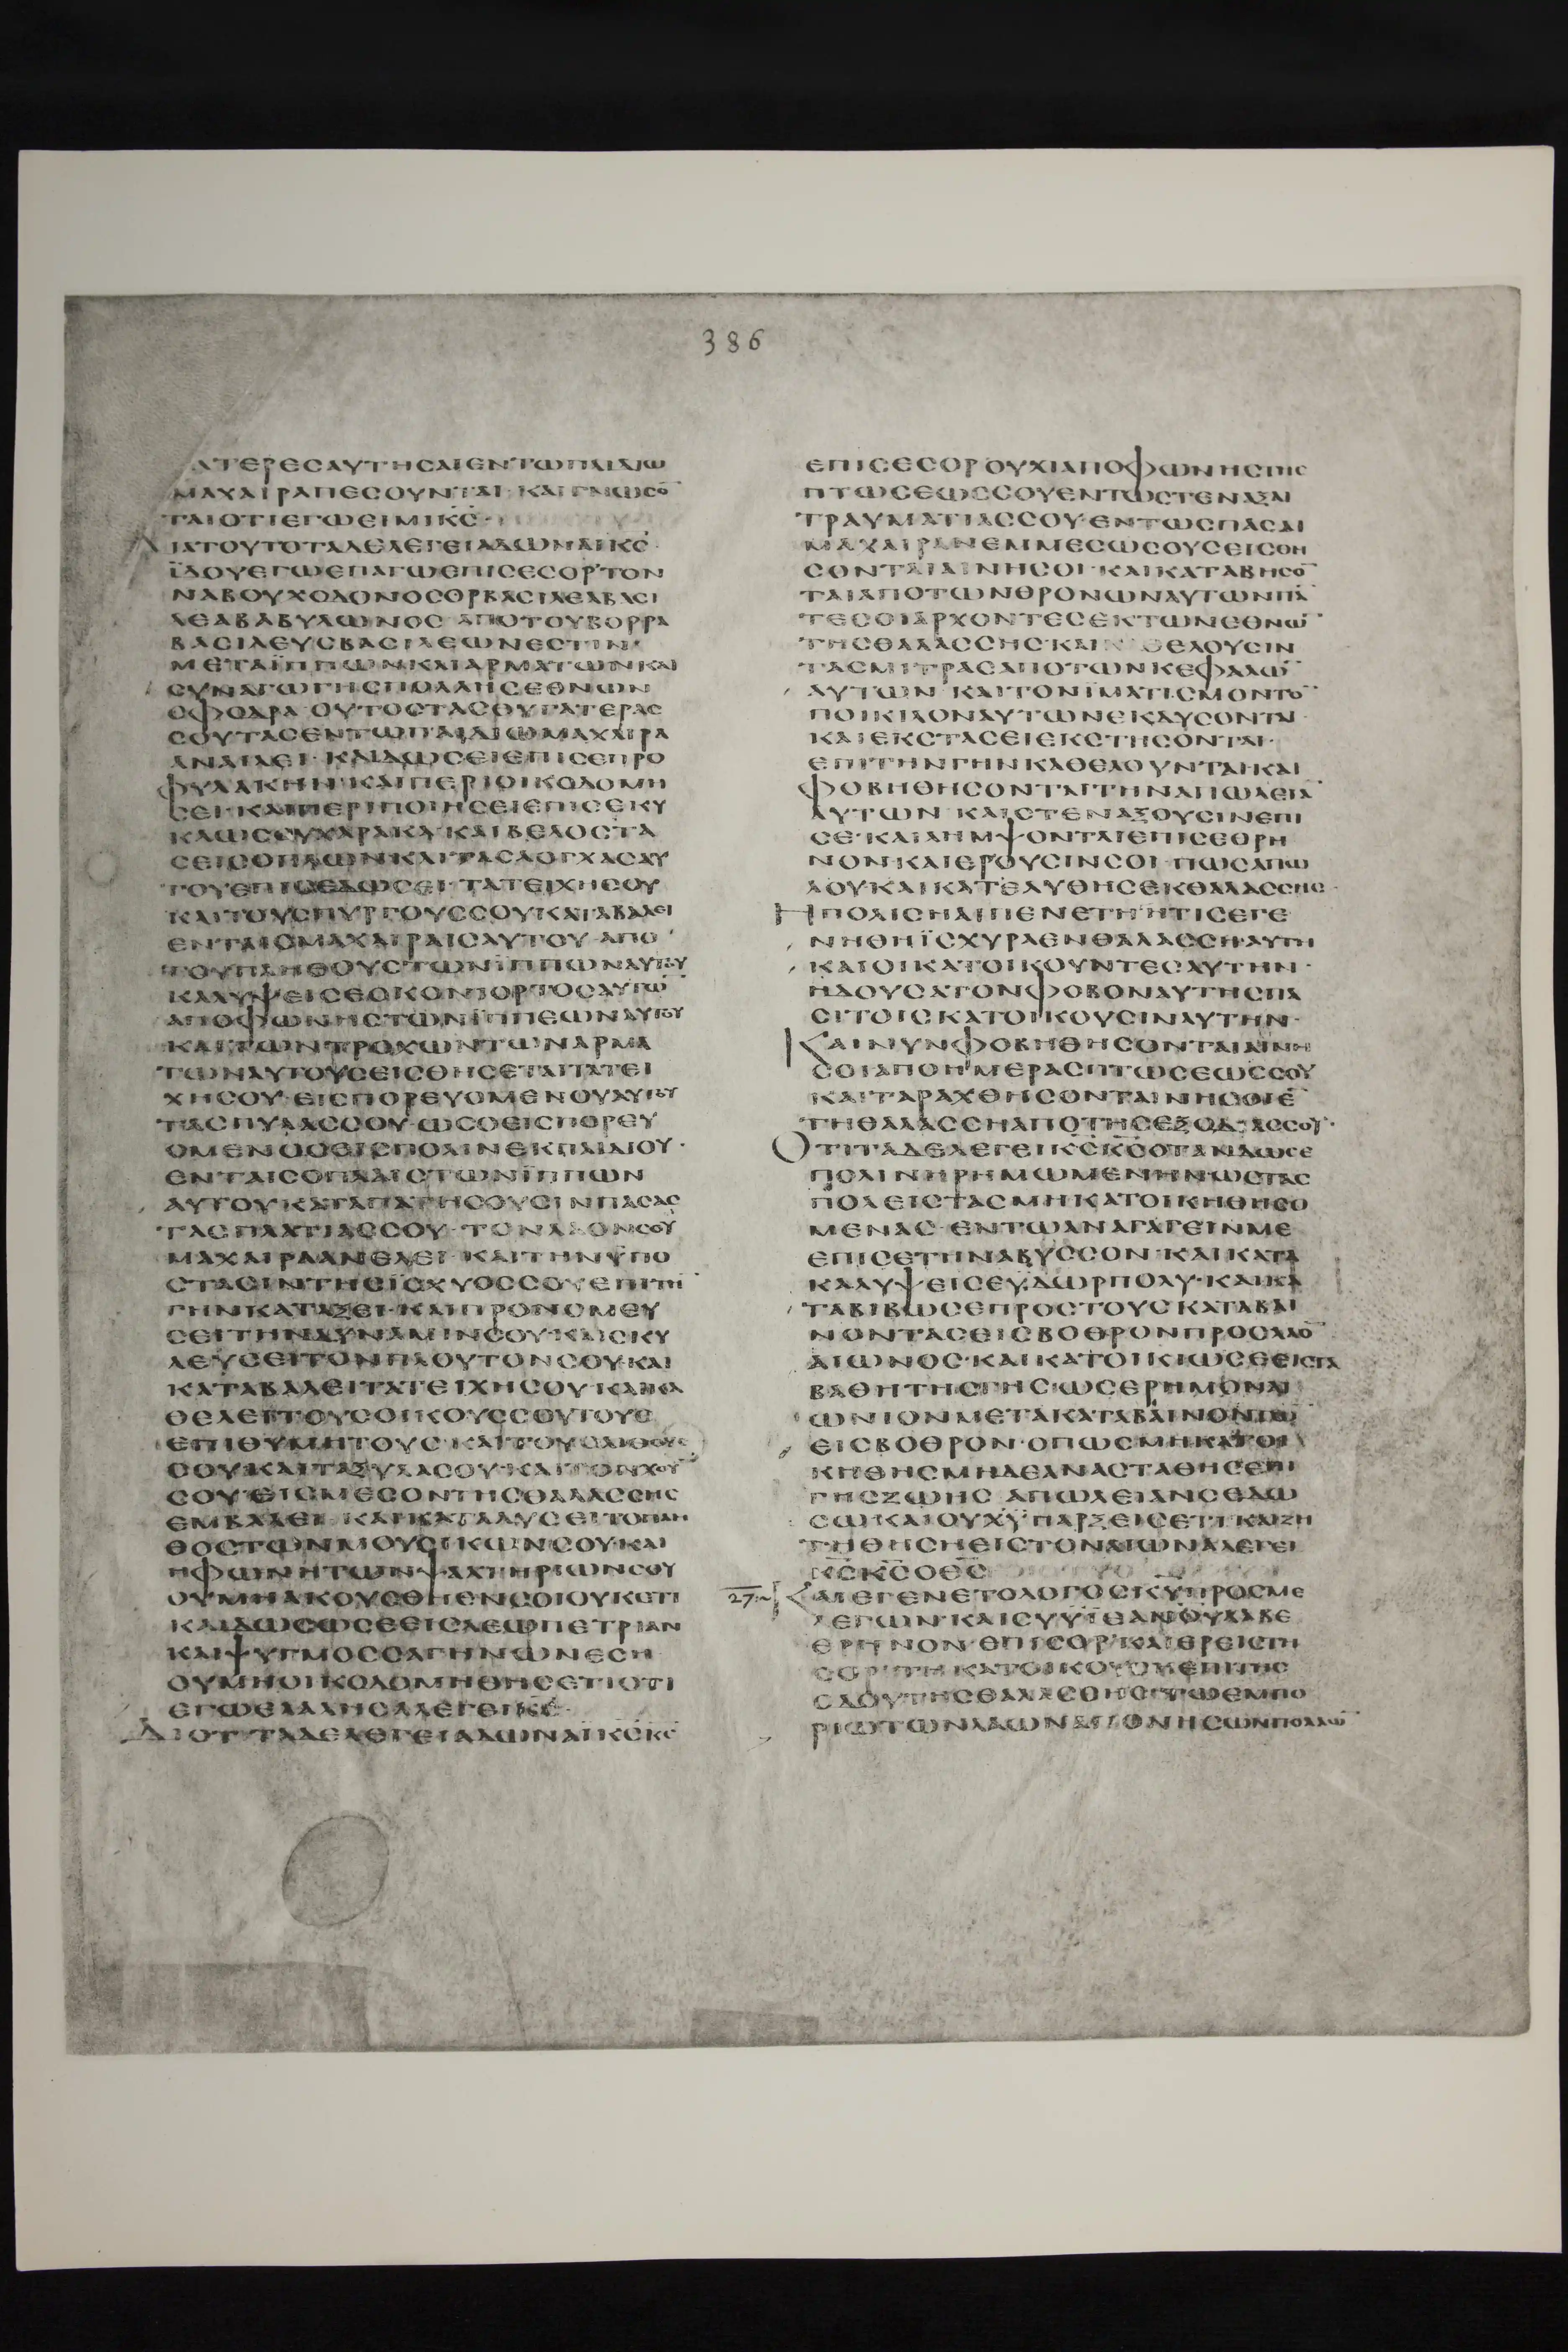 386
ΑΤΕΡΕСΑΥΤΗСΑΙΕΝΤΩΠΑΙΔΙΩ
ΜΑΧΑΙΡΑΠΕСΟΥΝΤΑΙ· ΚΑΙΓΝΩСΟ̄
ΤΑΙΟΤΙΕΓΩΕΙΜΙΚ̅С̅·
ΔΙΑΤΟΥΤΟΤΑΔΕΛΕΓΕΙΑΔΩΝΑΙΚ̅С̅·
ΪΔΟΥΕΓΩΕΠΑΓΩΕΠΙСΕСΟΡ᾽ΤΟΝ
ΝΑΒΟΥΧΟΔΟΝΟСΟΡΒΑСΙΛΕΑΒΑСΙ
ΛΕΑΒΑΒΥΛΩΝΟС ΑΠΟΤΟΥΒΟΡΡΑ
ΒΑСΙΛΕΥСΒΑСΙΛΕΩΝΕСΤΙΝ·
ΜΕΤΑΪΠΠΩΝΚΑΙΑΡΜΑΤΩΝΚΑΙ
СΥΝΑΓΩΓΗСΠΟΛΛΗСΕΘΝΩΝ
СΦΟΔΡΑ ΟΥΤΟСΤΑСΘΥΓΑΤΕΡΑС
СΟΥΤΑСΕΝΤΩΠΑΙΔΙΩΜΑΧΑΙΡΑ
ΑΝΕΛΕΙ· ΚΑΙΔΩСΕΙΕΠΙСΕΠΡΟ
ΦΥΛΑΚΗΝ·ΚΑΙΠΕΡΙΟΙΚΟΔΟΜΗ
СΕΙ·ΚΑΙΠΕΡΙΠΟΙΗСΕΙΕΠΙСΕΚΥ
ΚΛΩСΟΥΧΑΡΑΚΑ·ΚΑΙΒΕΛΟСΤΑ
СΕΙСΟΠΛΩΝ·ΚΑΙΤΑСΛΟΓΧΑСΑΥ
ΤΟΥΕΠΙСΕΔΩСΕΙ· ΤΑΤΕΙΧΗСΟΥ
ΚΑΙΤΟΥСΠΥΡΓΟΥССΟΥΚΑΤΑΒΑΛΕΙ
ΕΝΤΑΙСΜΑΧΑΙΡΑΙСΑΥΤΟΥ ΑΠΟ
ΤΟΥΠΛΗΘΟΥСΤΩΝΪΠΠΩΝΑΥΤΟΥ
ΚΑΛΥΨΕΙСΕΟΚΟΝΙΟΡΤΟСΑΥΤΩ̄
ΑΠΟΦΩΝΗСΤΩΝΪΠΠΕΩΝΑΥΤΟΥ
ΚΑΙΤΩΝΤΡΟΧΩΝΤΩΝΑΡΜΑ
ΤΩΝΑΥΤΟΥСΕΙСΘΗСΕΤΑΙΤΑΤΕΙ
ΧΗСΟΥ·ΕΙСΠΟΡΕΥΟΜΕΝΟΥΑΥΤΟΥ
ΤΑСΠΥΛΑССΟΥ·ΩСΟΕΙСΠΟΡΕΥ
ΟΜΕΝΟСΕΙСΠΟΛΙΝΕΚΠΑΙΔΙΟΥ·
ΕΝΤΑΙСΟΠΛΑΙСΤΩΝΪΠΠΩΝ
ΑΥΤΟΥΚΑΤΑΠΑΤΗСΟΥСΙΝΠΑСΑС
ΤΑСΠΛΑΤΙΑССΟΥ· ΤΟΝΛΑΟΝСΟΥ
ΜΑΧΑΙΡΑΑΝΕΛΕΙ· ΚΑΙΤΗΝΫΠΟ
СΤΑСΙΝΤΗСΪСΧΥΟССΟΥΕΠΙΤΗ̄
ΓΗΝΚΑΤΑΞΕΙ·ΚΑΙΠΡΟΝΟΜΕΥ
СΕΙΤΗΝΔΥΝΑΜΙΝСΟΥ·ΚΑΙСΚΥ
ΛΕΥСΕΙΤΟΝΠΛΟΥΤΟΝСΟΥ·ΚΑΙ
ΚΑΤΑΒΑΛΕΙΤΑΤΕΙΧΗСΟΥ·ΚΑΙΚΑ
ΘΕΛΕΙΤΟΥСΟΙΚΟΥССΟΥΤΟΥС
ΕΠΙΘΥΜΗΤΟΥС·ΚΑΙΤΟΥСΛΙΘΟΥС
СΟΥ·ΚΑΙΤΑΞΥΛΑСΟΥ·ΚΑΙΤΟΝΧΟῩ
СΟΥ·ΕΙСΜΕСΟΝΤΗСΘΑΛΑССΗС
ΕΜΒΑΛΕΙ· ΚΑΙΚΑΤΑΛΥСΕΙΤΟΠΛΗ
ΘΟСΤΩΝΜΟΥСΙΚΩΝСΟΥ·ΚΑΙ
ΗΦΩΝΗΤΩΝΨΑΛΤΗΡΙΩΝСΟΥ
ΟΥΜΗΑΚΟΥСΘΗΕΝСΟΙΟΥΚΕΤΙ
ΚΑΙΔΩСΩСΕΕΙСΛΕΩΠΕΤΡΙΑΝ
ΚΑΙΨΥΓΜΟССΑΓΗΝΩΝΕСΗ
ΟΥΜΗΟΙΚΟΔΟΜΗΘΗСΕΤΙΟΤΙ
ΕΓΩΕΛΑΛΗСΑΛΕΓΕΙΚ̅С̅·
ΔΙΟΤΙΤΑΔΕΛΕΓΕΙΑΔΩΝΑΪΚ̅С̅Κ̅С̅
ΕΠΙСΕСΟΡ ΟΥΧΙΑΠΟΦΩΝΗСΤΗС
ΠΤΩСΕΩССΟΥΕΝΤΩСΤΕΝΑΞΑΙ
ΤΡΑΥΜΑΤΙΑССΟΥ·ΕΝΤΩСΠΑСΑΙ
ΜΑΧΑΙΡΑΝΕΜΜΕСΩСΟΥСΕΙСΘΗ
СΟΝΤΑΙΑΙΝΗСΟΙ·ΚΑΙΚΑΤΑΒΗСΟ̄
ΤΑΙΑΠΟΤΩΝΘΡΟΝΩΝΑΥΤΩΝΠᾹ
ΤΕСΟΙΑΡΧΟΝΤΕСΕΚΤΩΝΕΘΝΩ̄
ΤΗСΘΑΛΑССΗС·ΚΑΙ ΘΕΛΟΥСΙΝ
ΤΑСΜΙΤΡΑСΑΠΟΤΩΝΚΕΦΑΛΩ̄
ΑΥΤΩΝ ΚΑΙΤΟΝΪΜΑΤΙСΜΟΝΤΟ̄
ΠΟΙΚΙΛΟΝΑΥΤΩΝΕΚΔΥСΟΝΤΑΙ·
ΚΑΙΕΚСΤΑСΕΙΕΚСΤΗСΟΝΤΑΙ·
ΕΠΙΤΗΝΓΗΝΚΑΘΕΔΟΥΝΤΑΙ·ΚΑΙ
ΦΟΒΗΘΗСΟΝΤΑΙΤΗΝΑΠΩΛΕΙᾹ
ΑΥΤΩΝ ΚΑΙСΤΕΝΑΞΟΥСΙΝΕΠΙ
СΕ·ΚΑΙΛΗΜΨΟΝΤΑΙΕΠΙСΕΘΡΗ
ΝΟΝ·ΚΑΙΕΡΟΥСΙΝСΟΙ·ΠΩСΑΠΩ
ΛΟΥΚΑΙΚΑΤΕΛΥΘΗСΕΚΘΑΛΑССΗС·
ΗΠΟΛΙСΗΑΙΠΕΝΕΤΗ·ΗΤΙСΕΓΕ
ΝΗΘΗΪСΧΥΡΑΕΝΘΑΛΑССΗ·ΑΥΤΗ
ΚΑΙΟΙΚΑΤΟΙΚΟΥΝΤΕСΑΥΤΗΝ·
ΗΔΟΥСΑΤΟΝΦΟΒΟΝΑΥΤΗСΠΑ
СΙΤΟΙСΚΑΤΟΙΚΟΥСΙΝΑΥΤΗΝ·
ΚΑΙΝΥΝΦΟΒΗΘΗСΟΝΤΑΙΑΙΝΗ
СΟΙΑΠΟΗΜΕΡΑСΠΤΩСΕΩССΟΥ
ΚΑΙΤΑΡΑΧΘΗСΟΝΤΑΙΝΗСΟΙΕ̄
ΤΗΘΑΛΑССΗΑΠΟΤΗСΕΞΟΔΙΑССΟΥ·
ΟΤΙΤΑΔΕΛΕΓΕΙΚ̅С̅Κ̅С̅ΟΤΑΝΔΩСΕ
ΠΟΛΙΝΗΡΗΜΩΜΕΝΗΝ·ΩСΤΑС
ΠΟΛΕΙСΤΑСΜΗΚΑΤΟΙΚΗΘΗСΟ
ΜΕΝΑС·ΕΝΤΩΑΝΑΓΑΓΕΙΝΜΕ
ΕΠΙСΕΤΗΝΑΒΥССΟΝ·ΚΑΙΚΑΤΑ
ΚΑΛΥΨΕΙСΕΥΔΩΡΠΟΛΥ·ΚΑΙΚΑ
ΤΑΒΙΒΩСΕΠΡΟСΤΟΥСΚΑΤΑΒΑΙ
ΝΟΝΤΑСΕΙСΒΟΘΡΟΝΠΡΟСΛΑΟ̄
ΑΙΩΝΟС·ΚΑΙΚΑΤΟΙΚΙΩСΕΕΙСΤΑ
ΒΑΘΗΤΗСΓΗС·ΩСΕΡΗΜΟΝΑΙ
ΩΝΙΟΝΜΕΤΑΚΑΤΑΒΑΙΝΟΝΤΩ̄
ΕΙСΒΟΘΡΟΝ·ΟΠΩСΜΗΚΑΤΟΙ
ΚΗΘΗСΜΗΔΕΑΝΑСΤΑΘΗСΕΠΙ
ΓΗСΖΩΗС ΑΠΩΛΕΙΑΝСΕΔΩ
СΩ·ΚΑΙΟΥΧΫΠΑΡΞΕΙСΕΤΙ·ΚΑΙΖΗ
ΤΗΘΗСΗΕΙСΤΟΝΑΙΩΝΑΛΕΓΕΙ
Κ̅С̅Κ̅С̅ΟΘ̅С̅
27 ΚΑΙΕΓΕΝΕΤΟΛΟΓΟСΚ̅Υ̅ΠΡΟСΜΕ
ΛΕΓΩΝ·ΚΑΙСΥΥΪΕΑΝΘΟΥΛΑΒΕ
ΘΡΗΝΟΝ·ΕΠΙСΟΡ·ΚΑΙΕΡΕΙСΤΗ
СΟΡ·ΤΗΚΑΤΟΙΚΟΥСΗΕΠΙΤΗС
ΕΙСΟΔΟΥΤΗСΘΑΛΑССΗС·ΤΩΕΜΠΟ
ΡΙΩΤΩΝΛΑΩΝΑΠΟΝΗСΩΝΠΟΛΛΩ̄